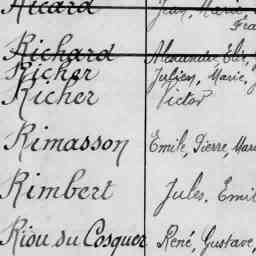 Ricard Jean, Marie,
Fra
Richard Alexandre, Elie,
Richer Julien, Marie,
Richer Victor
Rimasson Emile, Pierre, Mari
Rimbert Jules, Emil
Riou du Cosquer René, Gustave,